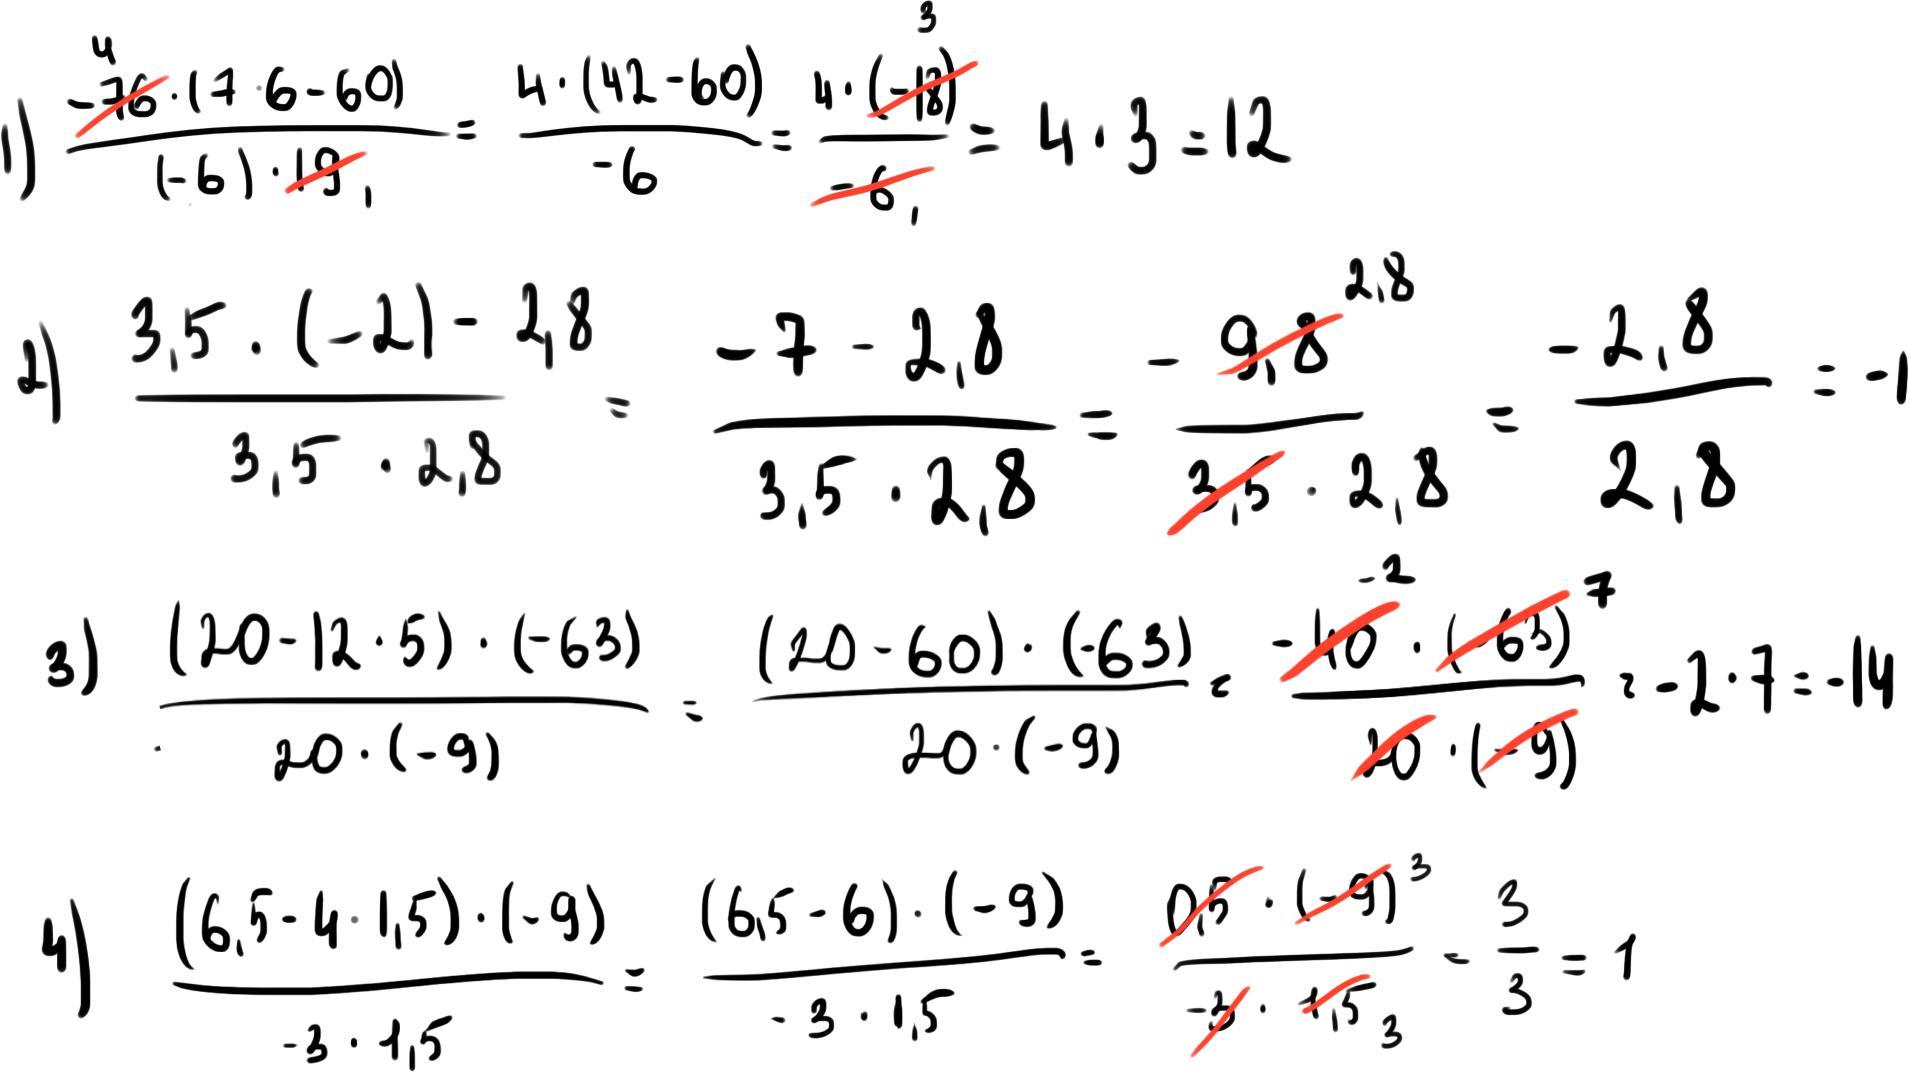 1) -76 · (7 · 6 - 60) / (-6) · 19 = 4 · (42 - 60) / -6 = 4 · (-18) / -6 = 4 · 3 = 12
2) 3,5 · (-2) - 2,8 / 3,5 · 2,8 = -7 - 2,8 / 3,5 · 2,8 = -9,8 / 3,5 · 2,8 = -2,8 / 2,8 = -1
3) (20 - 12 · 5) · (-63) / 20 · (-9) = (20 - 60) · (-63) / 20 · (-9) = -40 · (-63) / 20 · (-9) = -2 · 7 = -14
4) (6,5 - 4 · 1,5) · (-9) / -3 · 1,5 = (6,5 - 6) · (-9) / -3 · 1,5 = 0,5 · (-9) / -3 · 1,5 = 3 / 3 = 1